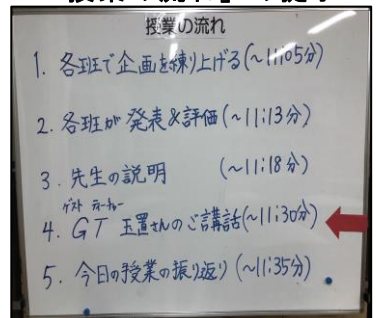 授業の流れ
1. 各班で企画を練り上げる(~11:05分)
2. 各班が発表&評価(~11:13分)
3. 先生の説明 (~11:18分)
ゲスト ティーチャー
4. GT 玉置さんのご講話(~11:30分)
5. 今日の授業の振り返り(~11:35分)